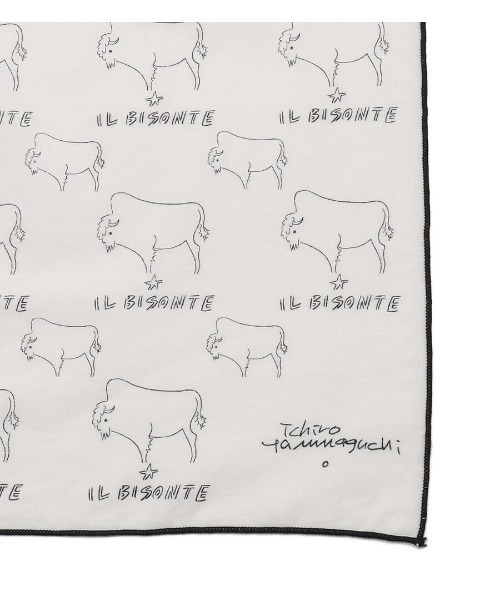 TE
IL BISONTE
IL BISONTE
TE
IL BISONTE
IL BISONTE
Ichiro
Yamaguchi
TE
IL BISONTE